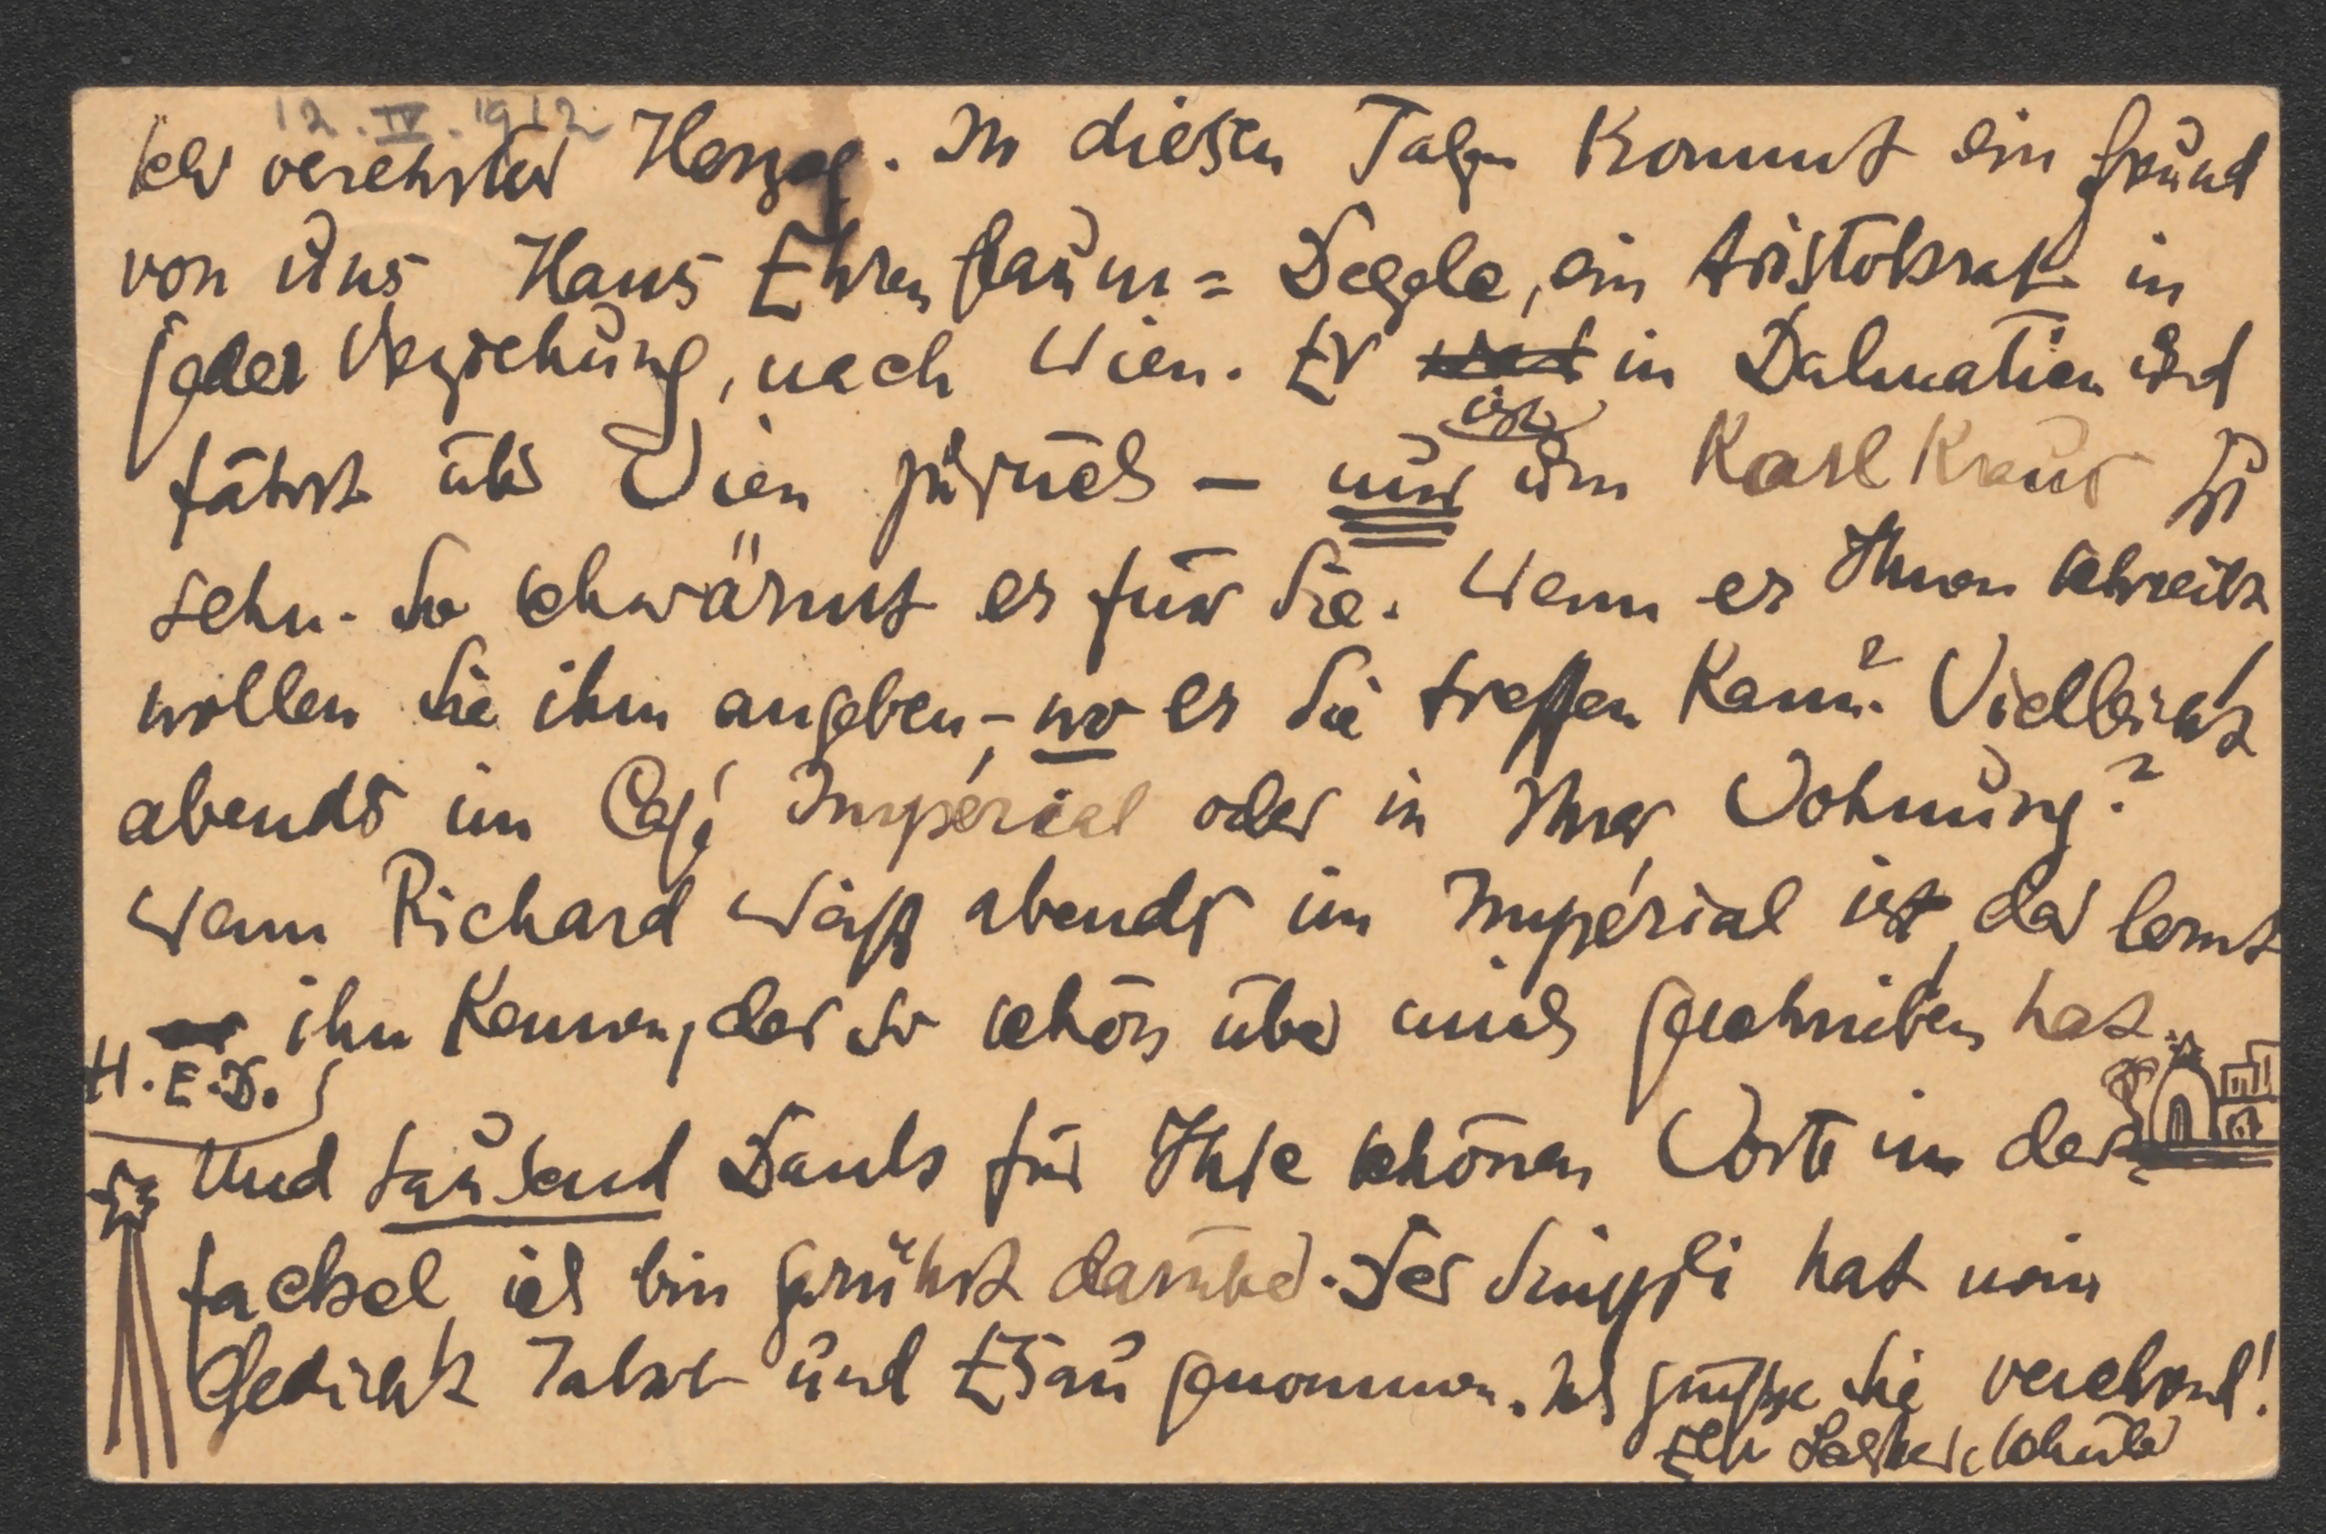 12.IV.1912
Sehr verehrter Herzog. In diesen Tagen kommt ein Freund
von uns Hans Ehrenbaum=Degele, ein Aristokrat in
jeder Beziehung, nach Wien. Er ist in Dalmatien und
fährt über Wien zurück – nur um Karl Kraus zu
sehn. So schwärmt er für Sie. Wenn er Ihnen schreibt
wollen Sie ihm angeben, – wo er Sie treffen kann? Vielleicht
abends im Café Impérial oder in Ihrer Wohnung?
Wenn Richard Weiß abends im Impérial ist, der lernt
H.E.D. ihn kennen, der so schön über mich geschrieben hat.
Und tausend Dank für Ihre schönen Worte in der
Fackel, ich bin gerührt darüber. Der Simpli hat mein
Gedicht Jakob und Esau genommen. Ich grüße Sie verehrend!
Else Lasker-Schüler